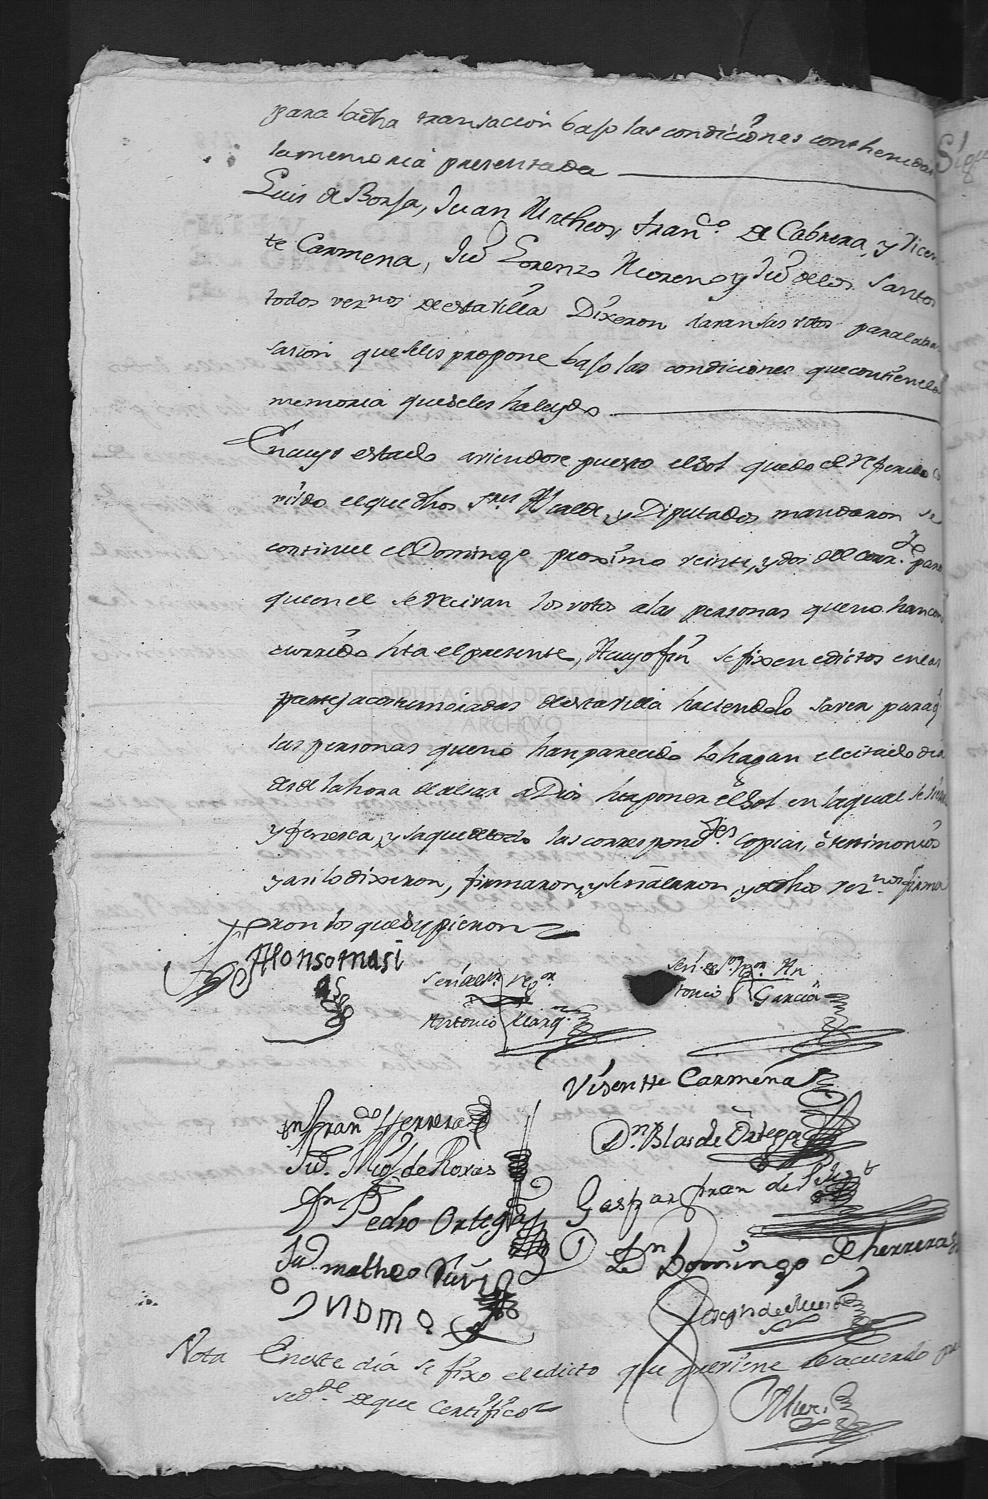 para la dha transacion bajo las condiciones contthenidas
la memoria presentada
Luis de Borja, Juan Matheos, Franco. de Cabrera, y Vicen
te Carmena, Jud Lorenzo Moreno y Jud de los Santos
todos veznos de esta Villa Dixeron daran sus votos para la
sacion que se les propone bajo las condiciones que contiene la
memoria que se les ha leydo
En cuyo estado aviendose puesto el Sol quedo el referido
el que dhos Sres Alcalde y Diputados mandaron se
continue el Domingo proximo veinte, y dos del corrte. para
que en el se recivan los votos a las personas que no han con
currido hta el presente, A cuyo fin se fixen edictos en las
partes acostumbradas de esta villa haciendolo saver para q
las personas que no han parecido lo hagan el citado dia
desde la hora de alzar a Dios hta poner el Sol en la qual se
y fenezca, y saque de todo las correspondtes. copias, o testimonios
y asi lo dixeron, firmaron, y señalaron, y dhos vez.nos firma
ron los que supieron
Alonso masi
Señal del Rexor
Antonio Marqn
Señ. de Sor Rexor An
tonio Garcia
Visente Carmena
Dn Franco Herrera
Dn. Blas de Ortega
Jud. Migl de Roxas
Gaspar Fran de
Dn Pedro Ortega
Dn Domingo de herrera
Jud matheo
Joseph de
Nota En este dia se fixo el edicto que previene el acuerdo
de que Certifico